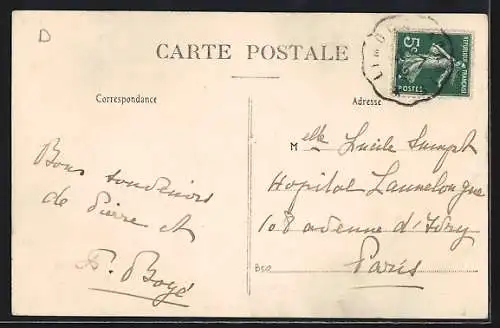 D
CARTE POSTALE
Correspondance
Adresse
RÉPUBLIQUE FRANÇAISE
5c
POSTES
Bons souvenirs
de Pierre et
F. Boyé
Melle Lucile Sumpt
Hopital Lannelongue
108 avenue d'Ivry
Paris